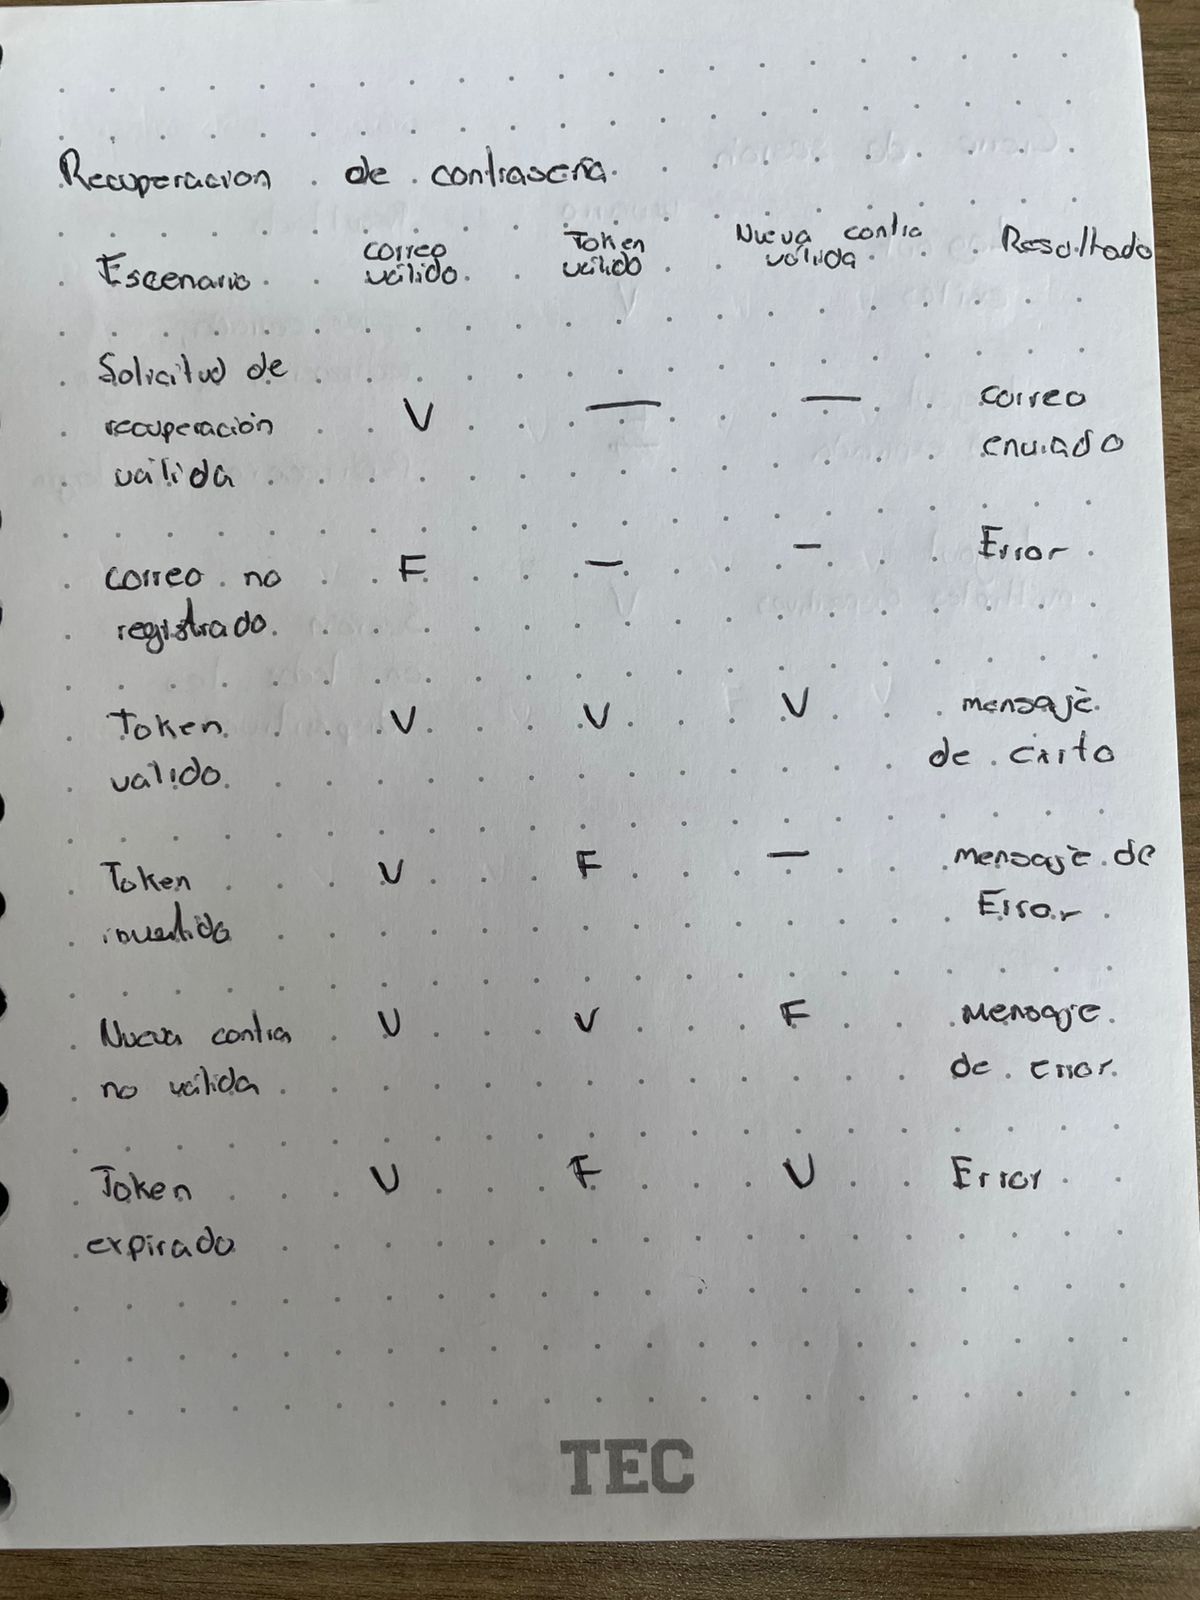 Recuperacion de contraseña
Escenario correo válido Token válido Nueva contra válida Resultado
Solicitud de recuperación válida V — — correo enviado
correo no registrado F — — Error
Token valido V V V mensaje de exito
Token invalido V F — mensaje de Error
Nueva contra no válida V V F Mensaje de error
Token expirado V F V Error
TEC